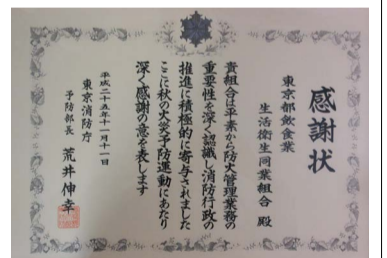 感謝状
東京都飲食業
生活衛生同業組合 殿
貴組合は平素から防火管理業務の
重要性を深く認識し消防行政の
推進に積極的に寄与されました
ここに秋の火災予防運動にあたり
深く感謝の意を表します
平成二十五年十一月十一日
東京消防庁
予防部長 荒井伸幸